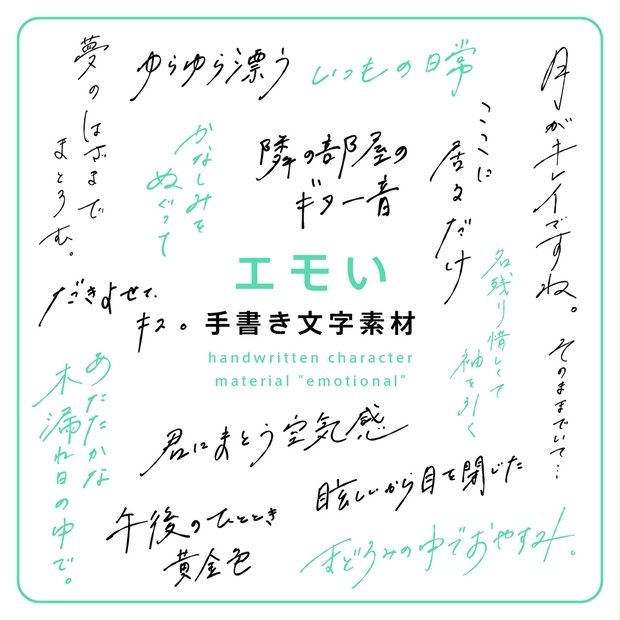 夢のはざまで
まどろむ。
ゆらゆら漂う
いつもの日常
月がキレイですね。
そのままでいて…
かなしみを
ぬぐって
隣の部屋の
ギター音
ここに
居るだけ
だきよせて、
キス。
エモい
手書き文字素材
handwritten character
material “emotional”
名残り惜しくて
袖を引く
あたたかな
木漏れ日の中で。
君にまとう空気感
眩しいから目を閉じた
午後のひととき
黄金色
まどろみの中でおやすみ。